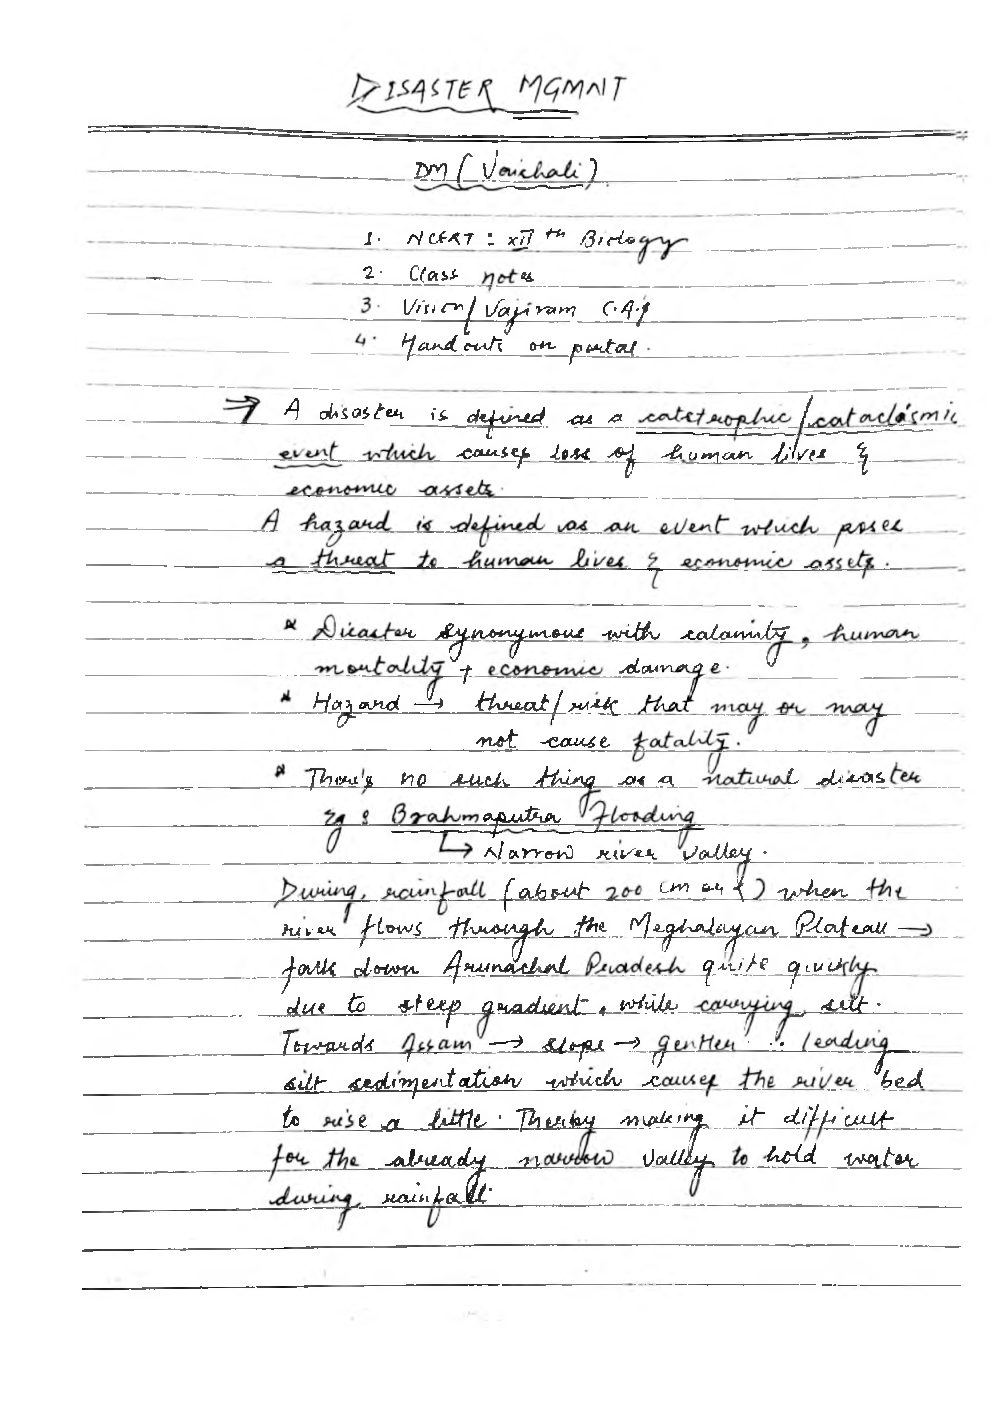 DISASTER MGMNT
DM (Vaishali)
1. NCERT : XIIth Biology
2. Class notes
3. Vision/Vajiram C.A.
4. Handouts on portal.
→ A disaster is defined as a catstrophic/cataclasmic
event which causes loss of human lives &
economic assets.
A hazard is defined as an event which poses
a threat to human lives & economic assets.
* Disaster synonymous with calamity, human
mortality + economic damage.
* Hazard → threat/risk that may or may
not cause fatality.
* There's no such thing as a natural disaster
Eg : Brahmaputra Flooding
↳ Narrow river valley.
During rainfall (about 200 cm or ) when the
river flows through the Meghalayan Plateau →
falls down Arunachal Pradesh quite quickly
due to steep gradient, while carrying silt.
Towards Assam → slope → gentler ∴ leading
silt sedimentation which causes the river bed
to rise a little. Therby making it difficult
for the already narrow valley to hold water
during rainfall.